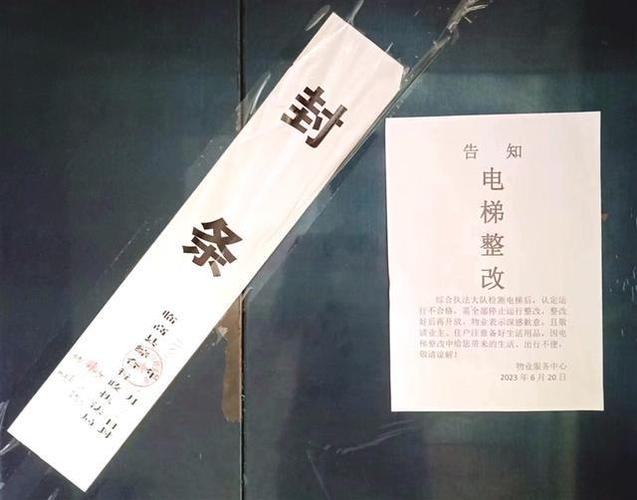 封条
临高县综合行政执法局
告 知
电梯整改
综合执法大队检测电梯后,认定运
行不合格,需全部停止运行整改,整改
好后再开放,物业表示深感歉意,且敬
请业主、住户注意备好生活用品,因电
梯整改中给您带来的生活、出行不便,
敬请谅解!
物业服务中心
2023 年 6 月 20 日